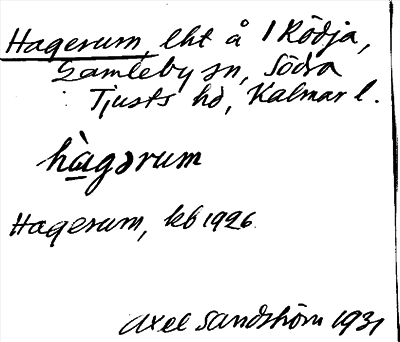 Hagerum, lht å 1 Rödja,
Gamleby sn, Södra
Tjusts hd, Kalmar l.
hàgərum
Hagerum, kb 1926.
Axel Sandström 1931